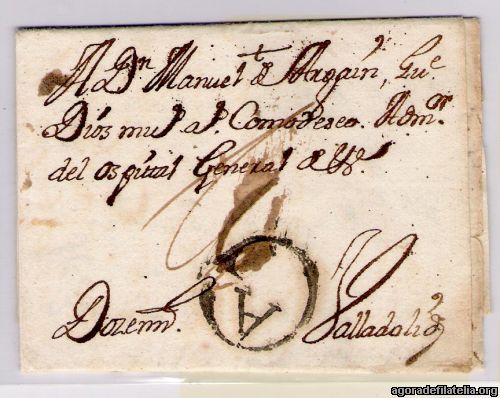 A Dn Manuel de Aragaún, Gue
Dios ms as. Como deseo. Admor.
del ospital General de
6
Valladolid
A
agoradefilatelia.org